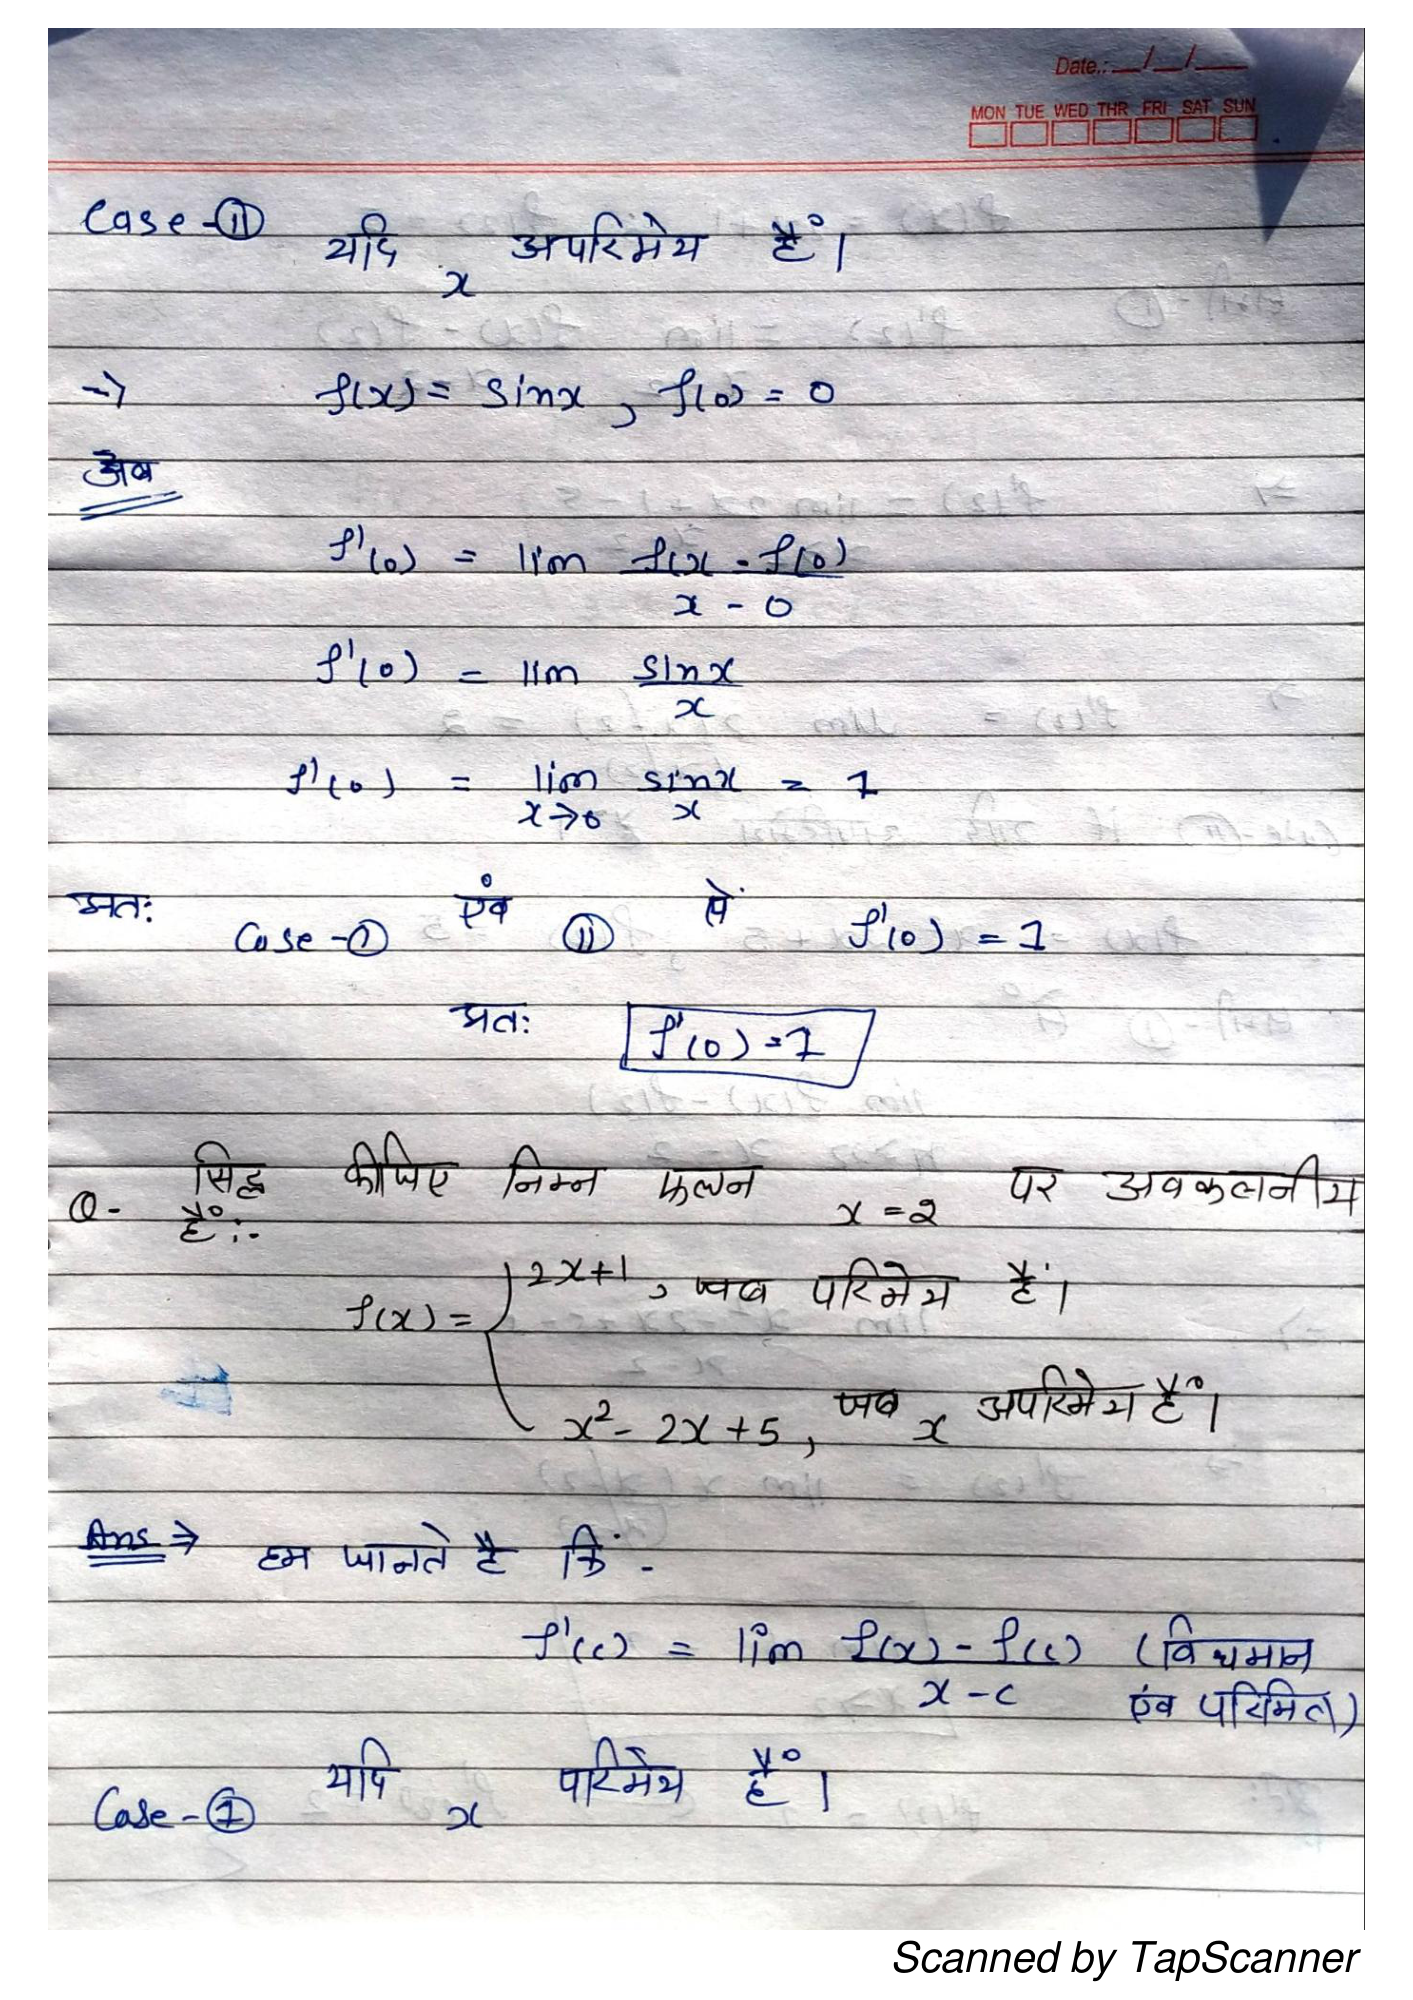 Date.: __/__/__
MON TUE WED THR FRI SAT SUN
Case-(II) यदि x अपरिमेय हैं।
→ f(x) = sinx, f(0) = 0
अब
f'(0) = lim f(x - f(0)
x - 0
f'(0) = lim sinx
x
f'(0) = lim sinx = 1
x→0 x
अतः Case-(1) एंव (II) से f'(0) = 1
अतः f'(0) = 1
Q- सिद्ध कीजिए निम्न फलन x = 2 पर अवकलनीय
हैं:-
f(x) = { 2x+1, जब परिमेय हैं।
x² - 2x + 5, जब x अपरिमेय हैं।
Ans ⇒ हम जानते है कि -
f'(c) = lim f(x) - f(c) (विद्यमान
x - c एंव परिमित)
Case-(1) यदि x परिमेय हैं।
Scanned by TapScanner